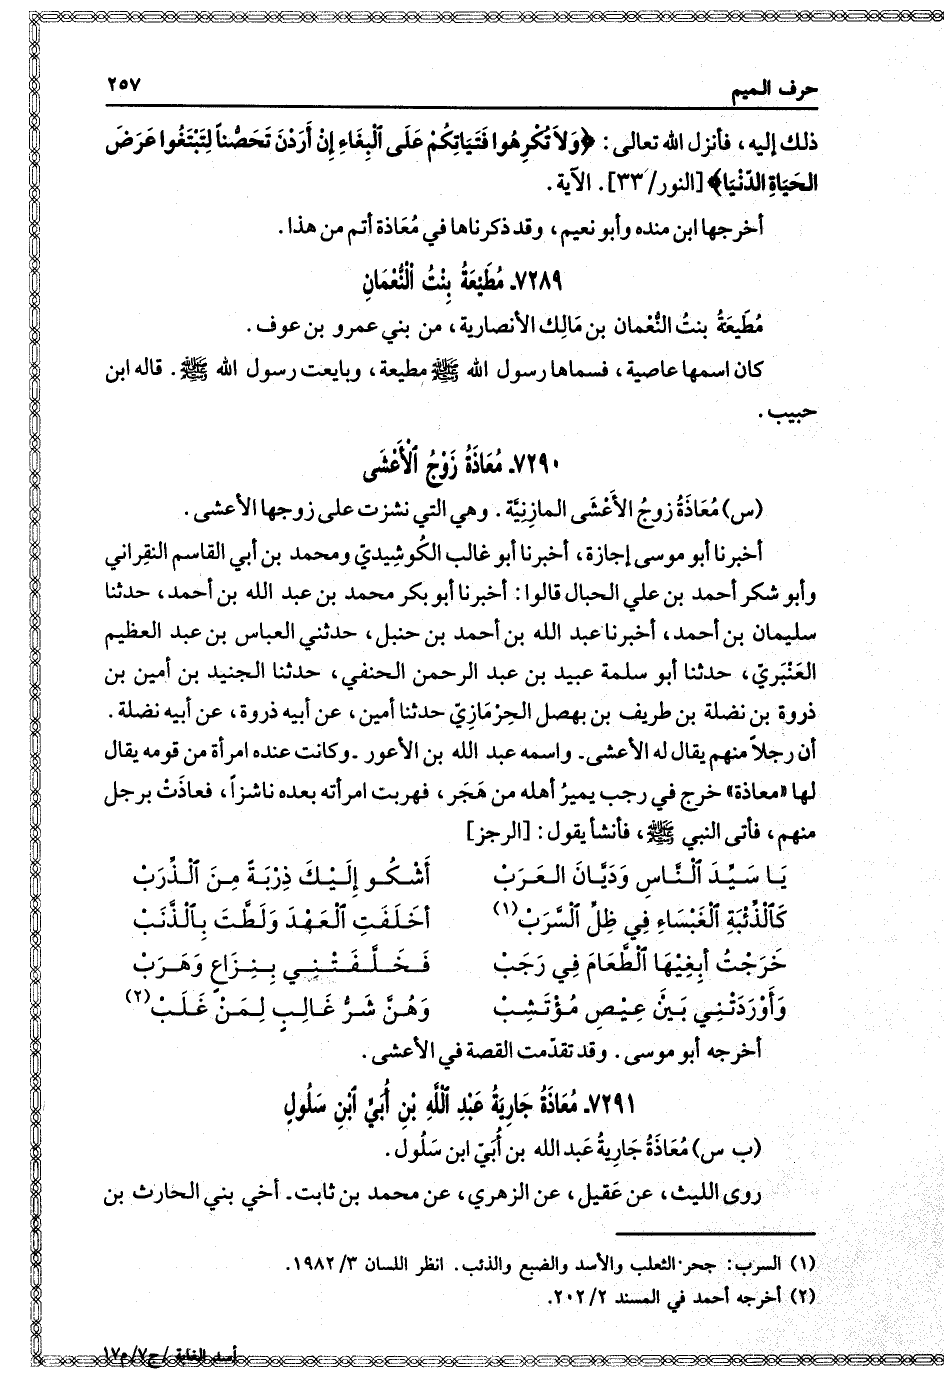 حرف الميم ٢٥٧
ذلك إليه، فأنزل الله تعالى: ﴿وَلاَ تُكْرِهُوا فَتَيَاتِكُمْ عَلَى ٱلْبِغَاءِ إِنْ أَرَدْنَ تَحَصُّناً لِتَبْتَغُوا عَرَضَ
الحَيَاةِ الدّنْيَا﴾ [النور/ ٣٣]. الآية.
أخرجها ابن منده وأبو نعيم، وقد ذكرناها في مُعَاذة أتم من هذا.
٧٢٨٩ـ مُطَيْعَةُ بِنْتُ ٱلْنُّعْمَانِ
مُطَيعَةُ بنتُ النُّعْمان بن مَالِك الأنصارية، من بني عمرو بن عوف.
كان اسمها عاصية، فسماها رسول الله ﷺ مطيعة، وبايعت رسول الله ﷺ. قاله ابن
حبيب.
٧٢٩٠ـ مُعَاذَةُ زَوْجُ ٱلْأَعْشَى
(س) مُعَاذَةُ زوجُ الأَعْشَى المازِنِيَّة. وهي التي نشزت على زوجها الأعشى.
أخبرنا أبو موسى إجازة، أخبرنا أبو غالب الكُوشِيديّ ومحمد بن أبي القاسم النقراني
وأبو شكر أحمد بن علي الحبال قالوا: أخبرنا أبو بكر محمد بن عبد الله بن أحمد، حدثنا
سليمان بن أحمد، أخبرنا عبد الله بن أحمد بن حنبل، حدثني العباس بن عبد العظيم
العَنْبَريّ، حدثنا أبو سلمة عبيد بن عبد الرحمن الحنفي، حدثنا الجنيد بن أمين بن
ذروة بن نضلة بن طريف بن بهصل الحِرْمَازِيّ حدثنا أمين، عن أبيه ذروة، عن أبيه نضلة.
أن رجلاً منهم يقال له الأعشى ـ واسمه عبد الله بن الأعور ـ وكانت عنده امرأة من قومه يقال
لها «معاذة» خرج في رجب يميرُ أهله من هَجَر، فهربت امرأته بعده ناشزاً، فعاذَتْ برجل
منهم، فأتى النبي ﷺ، فأنشأ يقول: [الرجز]
يَا سَيِّدَ ٱلْنَّاسِ وَدَيَّانَ العَرَبْ أَشْكُو إِلَيْكَ ذِرْبَةً مِنَ ٱلْذِّرَبْ
كَٱلْذِّئْبَةِ ٱلْغَبْسَاءِ فِي ظِلِّ ٱلْسَّرَبْ(١) أخَلَفَتِ ٱلْعَهْدَ وَلَطَّتْ بِٱلْذَّنَبْ
خَرَجْتُ أبغِيْهَا ٱلْطَّعَامَ فِي رَجَبْ فَخَلَّفَتْنِي بِنِزَاعٍ وَهَرَبْ
وَأَوْرَدَتْنِي بَيْنَ عِيْصٍ مُؤْتَشِبْ وَهُنَّ شَرُّ غَالِبٍ لِمَنْ غَلَبْ(٢)
أخرجه أبو موسى. وقد تقدّمت القصة في الأعشى.
٧٢٩١ـ مُعَاذَةُ جَارِيَةُ عَبْدِ ٱللَّهِ بْنِ أُبَيِّ ٱبْنِ سَلُولٍ
(ب س) مُعَاذَةُ جَارِيةُ عَبد الله بن أُبَيّ ابن سَلُول.
روى الليث، عن عَقيل، عن الزهري، عن محمد بن ثابت ـ أخي بني الحارث بن
(١) السرب: جحر الثعلب والأسد والضبع والذئب. انظر اللسان ٣/ ١٩٨٢.
(٢) أخرجه أحمد في المسند ٢/ ٢٠٢.
أسد الغابة / ج٧/ م١٧